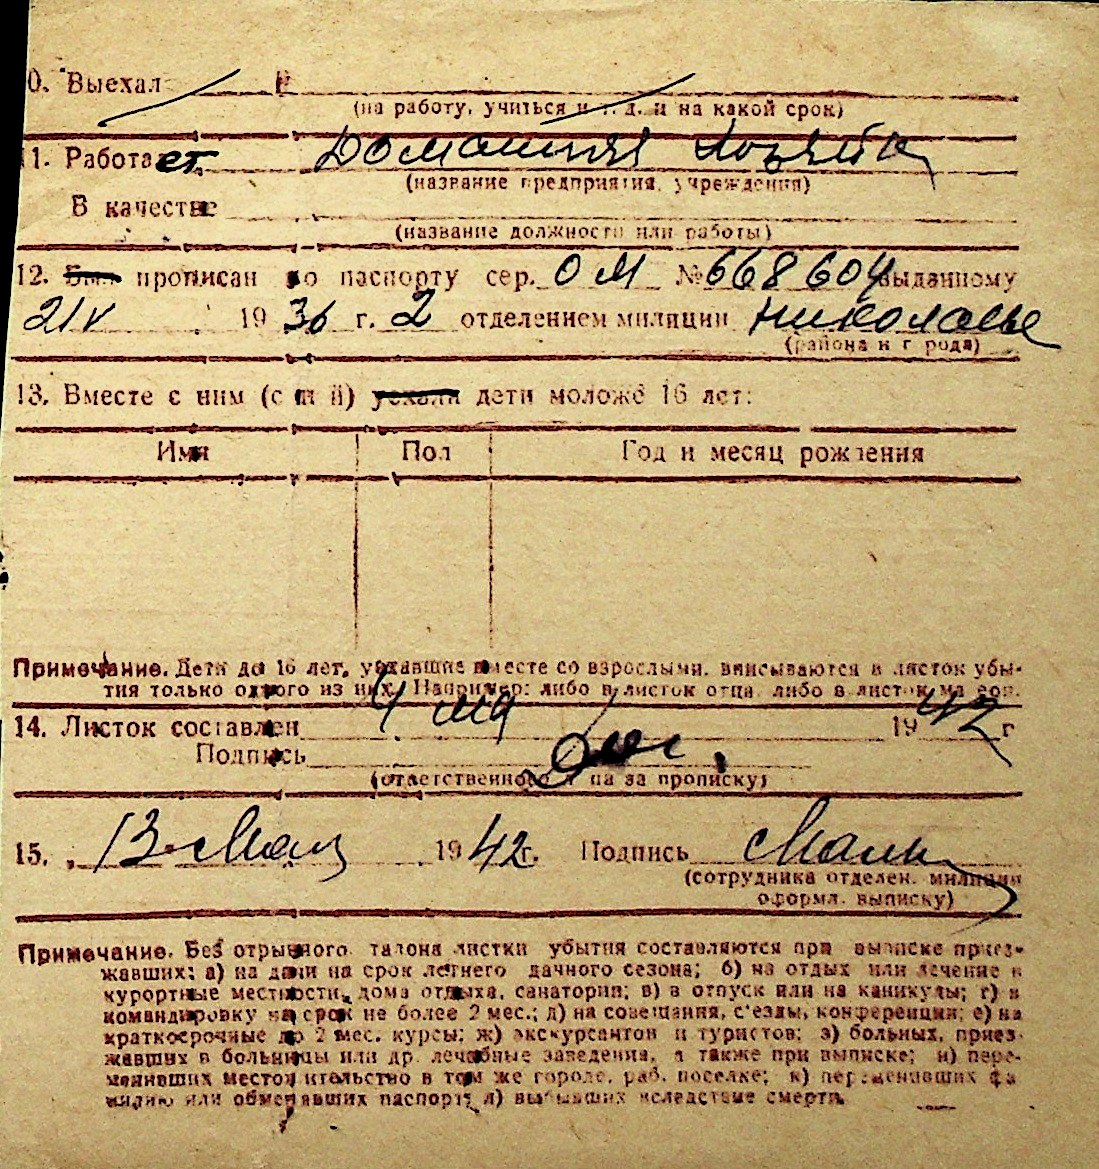 0. Выехал в
(на работу, учиться и т. д. и на какой срок)
11. Работает Домашняя хозяйка
(название предприятия, учреждения)
В качестве
(название должности или работы)
12. Был прописан по паспорту сер. ОМ № 668604 выданному
21/V 1936 г. 2 отделением милиции Николаеве
(района и города)
13. Вместе с ним (с ней) уехали дети моложе 16 лет:
Имя Пол Год и месяц рождения
Примечание. Дети до 16 лет, уехавшие вместе со взрослыми, вписываются в листок убы-
тия только одного из них. Например: либо в листок отца, либо в листок матери.
14. Листок составлен 4 мая 1942 г
Подпись
(ответственного лица за прописку)
15. „ 13 Мая 1942 г. Подпись
(сотрудника отделен. милиции
оформл. выписку)
Примечание. Без отрывного талона листки убытия составляются при выписке приез-
жавших: а) на дачи на срок летнего дачного сезона; б) на отдых или лечение в
курортные местности, дома отдыха, санатории; в) в отпуск или на каникулы; г) в
командировку на срок не более 2 мес.; д) на совещания, с'езды, конференции; е) на
краткосрочные до 2 мес. курсы; ж) экскурсантов и туристов; з) больных, приез-
жавших в больницы или др. лечебные заведения, а также при выписке; и) пере-
менивших местожительство в том же городе, раб. поселке; к) переменивших фа-
милию или обменявших паспорт; л) выбывших вследствие смерти.